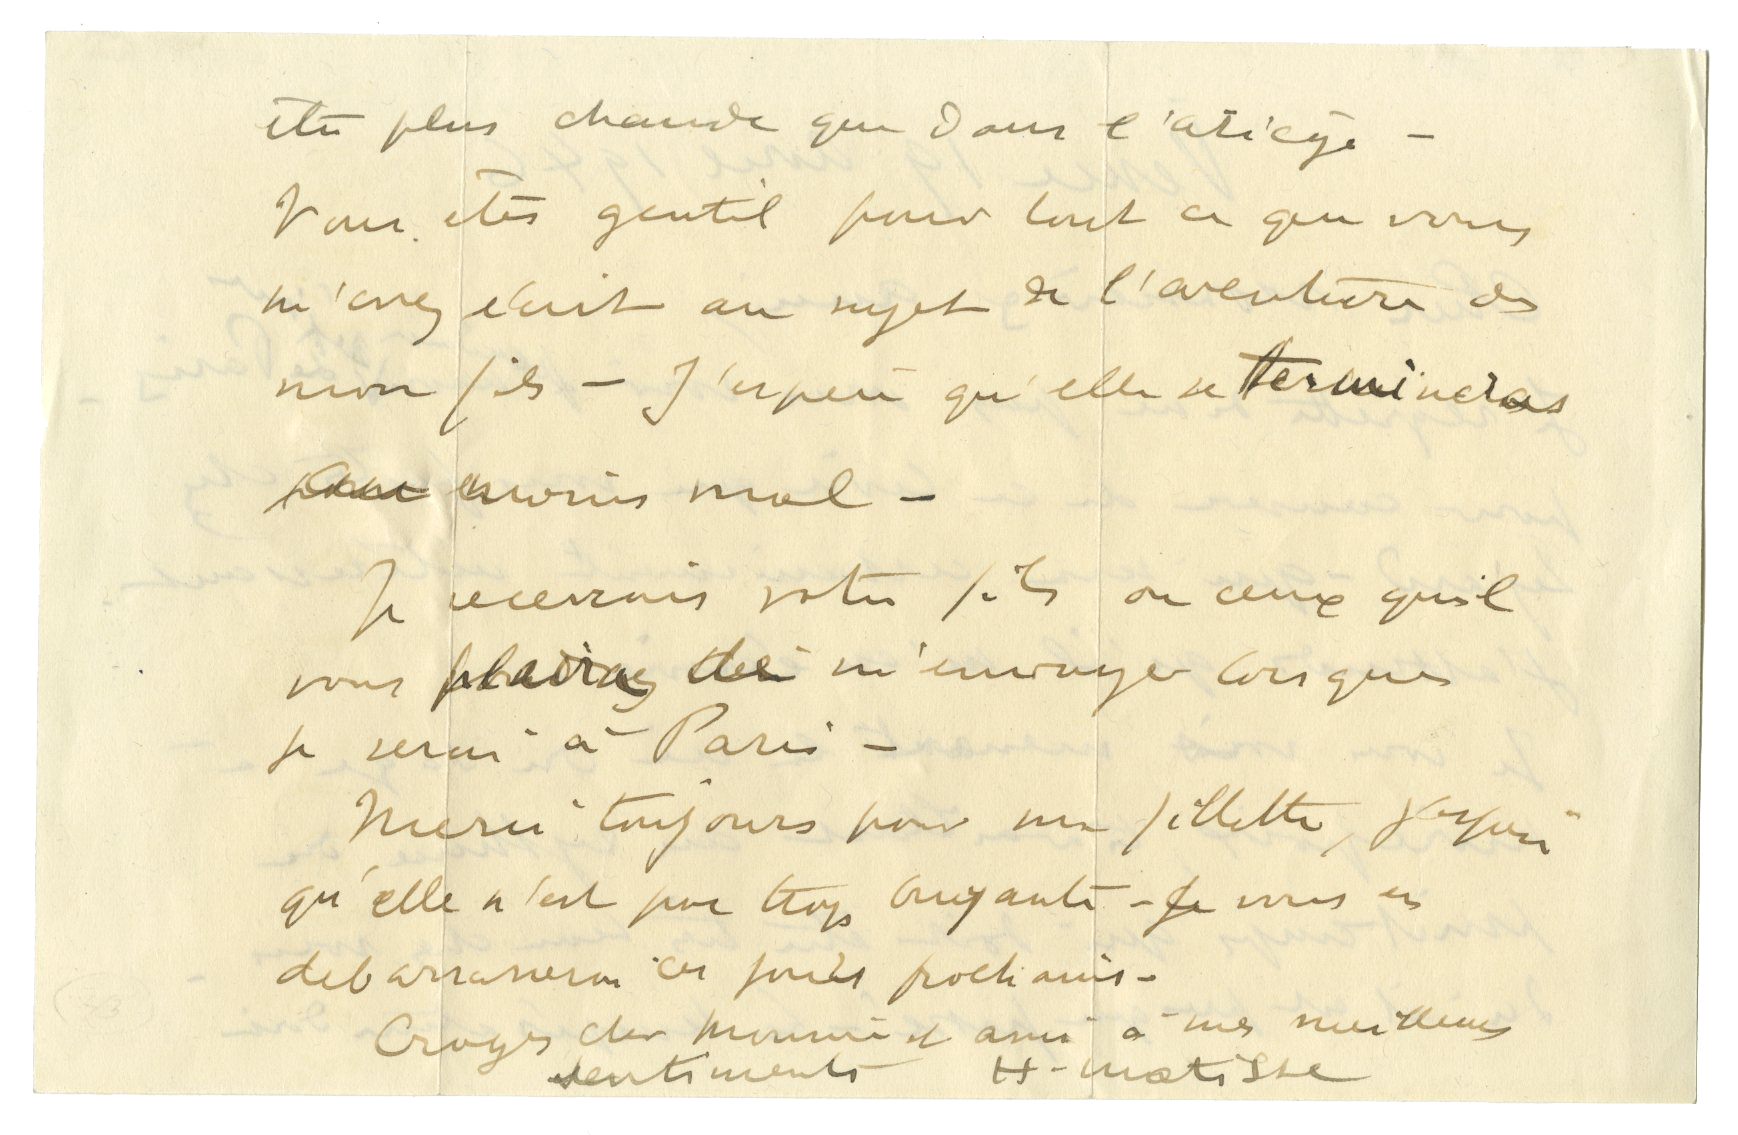 été plus chaude que dans l'ariège –
Vous êtes gentil pour tout ce que vous
m'avez écrit au sujet de l'aventure de
mon fils – J'espère qu'elle se terminera
moins mal –
Je recevrais votre fils ou ceux qu'il
vous plaira de m'envoyer lorsque
je serai à Paris –
Merci toujours pour ma fillette, j'espère
qu'elle n'est pas trop bruyante – Je vous en
débarrasserai ces jours prochains –
Croyez cher Monsieur et ami à mes meilleurs
sentiments H. matisse